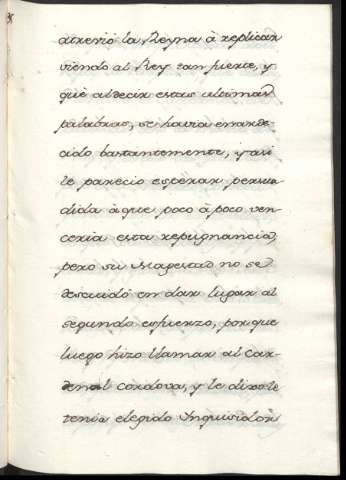 atrevió la Reyna à replicar
viendo al Rey tan fuerte, y
què al decir estas ultimas
palabras, se havia enarde-
cido bastantemente, y asi
le parecio esperar persua
dida à que poco à poco ven-
ceria esta repugnancia,
pero su Magestad no se
descuidó en dar lugar al
segundo esfuerzo, porque
luego hizo llamar al Car-
denal Cordova, y le dixo le
tenia elegido Inquisidor